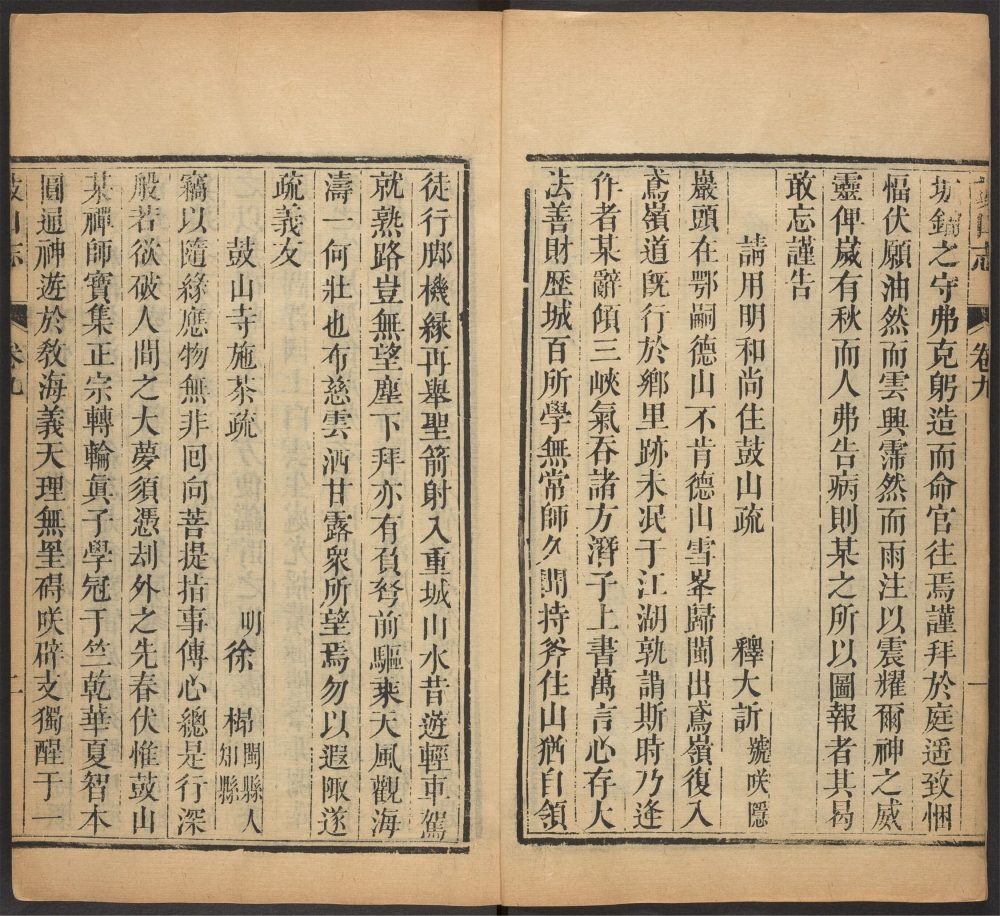 鼓山志 卷九 一
坊鏞之守弗克躬造而命官往焉謹拜於庭遥致悃
愊伏願油然而雲興霈然而雨注以震耀爾神之威
靈俾嵗有秋而人弗告病則某之所以圖報者其曷
敢忘謹告
請用明和尚住鼓山疏 釋大訢號咲隱
巖頭在鄂嗣德山不肯德山雪峯歸閩出鳶嶺復入
鳶嶺道旣行於鄉里跡未泯于江湖孰謂斯時乃逢
作者某辭傾三峽氣吞諸方濳子上書萬言心存大
法善財歴城百所學無常師久聞持斧住山猶自領
徒行脚機緣再舉聖箭射入重城山水昔遊輕車駕
就熟路豈無望塵下拜亦有負弩前驅乘天風觀海
濤一何壯也布慈雲洒甘露衆所望焉勿以遐陬遂
疏義友
鼓山寺施茶疏 明徐㭿閩縣人知縣
竊以隨緣應物無非囘向菩提指事傳心總是行深
般若欲破人間之大夢須憑刧外之先春伏惟鼓山
某禪師寳集正宗轉輪眞子學冠于竺乾華夏智本
圓通神遊於敎海義天理無罣碍咲辟支獨醒于一
鼓山志 卷九 二